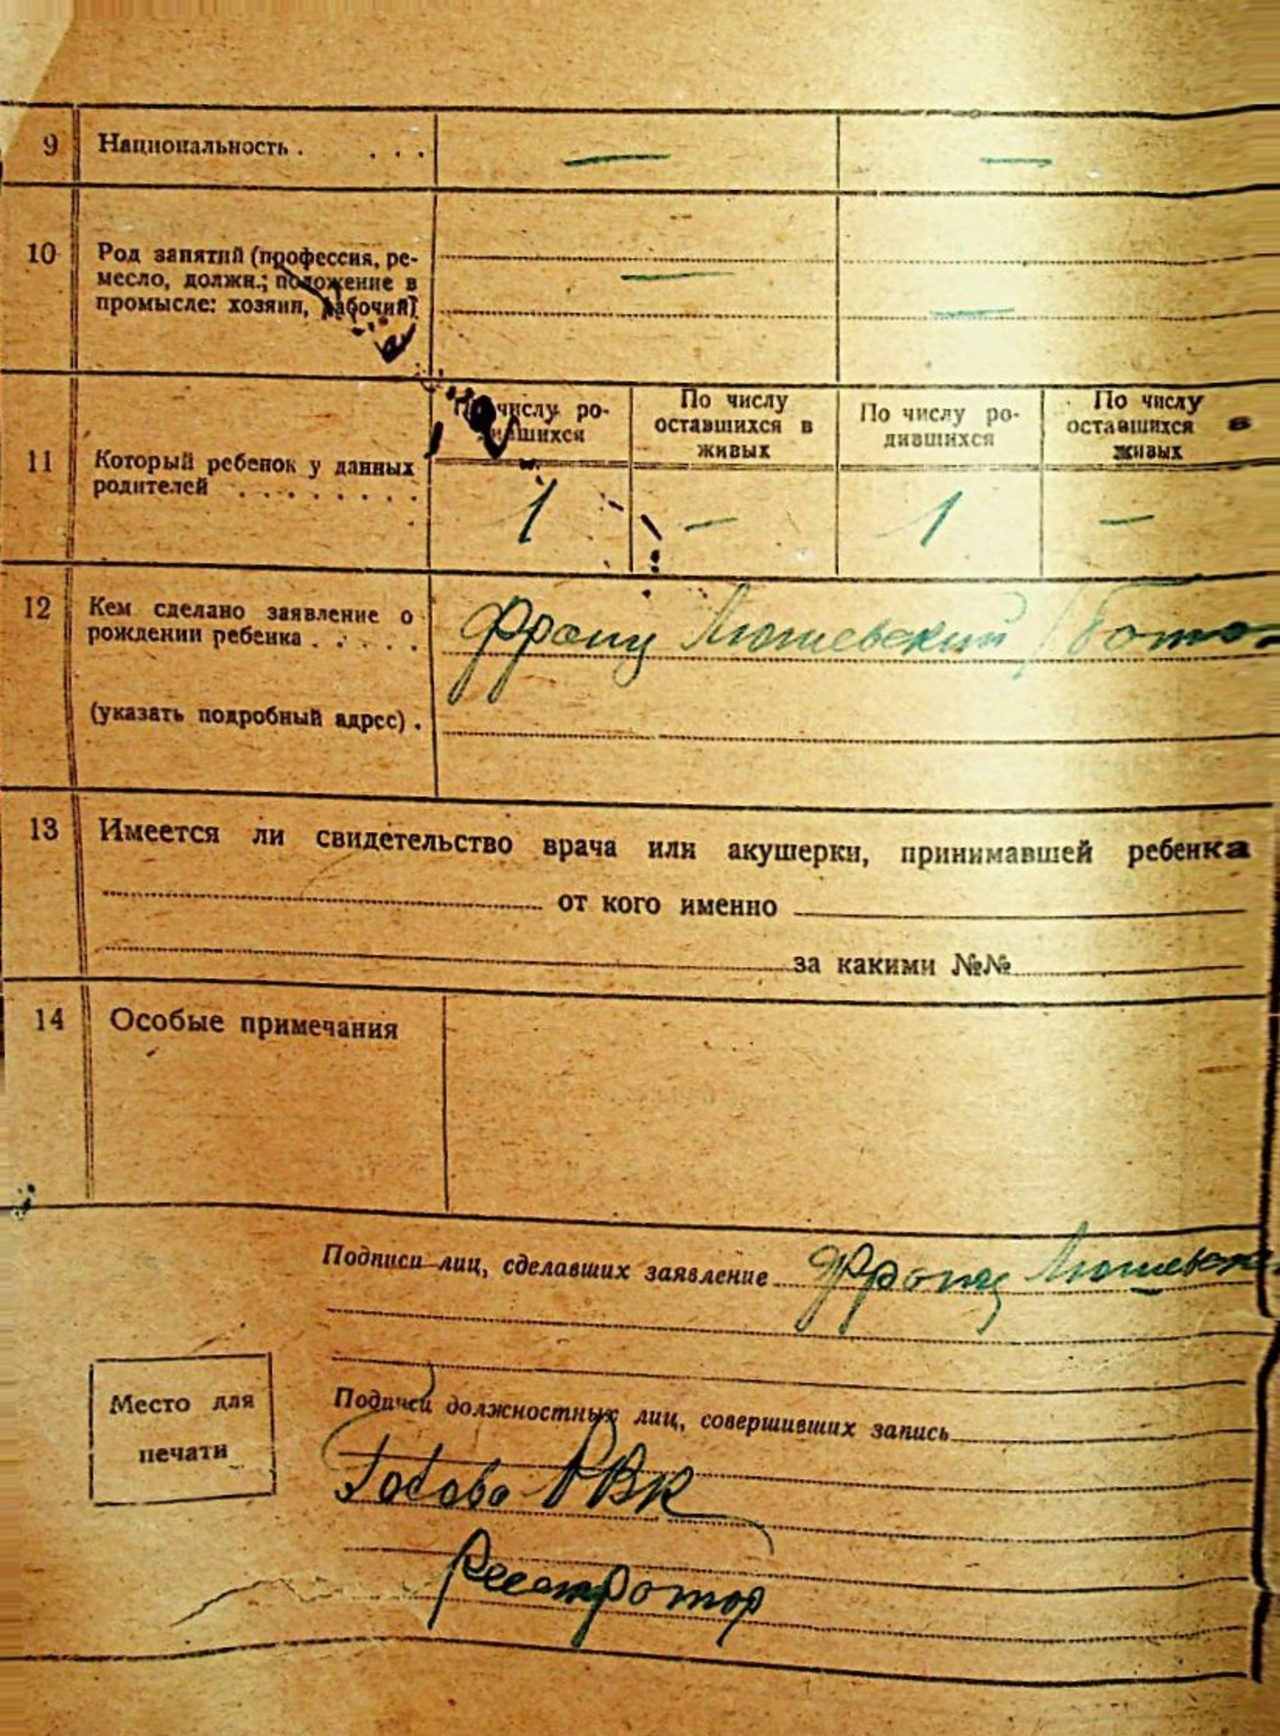 9 Национальность . . . . — —
10 Род занятий (профессия, ре-
месло, должн.; положение в —
промысле: хозяин, рабочий) —
По числу ро-
дившихся
По числу
оставшихся в
живых
По числу ро-
дившихся
По числу
оставшихся в
живых
11 Который ребенок у данных
родителей . . . . . . . . 1 — 1 —
12 Кем сделано заявление о
рождении ребенка . . . . . Франц
(указать подробный адрес) .
13 Имеется ли свидетельство врача или акушерки, принимавшей ребенка
от кого именно
за какими №№
14 Особые примечания
Подписи лиц, сделавших заявление Франц
Место для
печати
Подписи должностных лиц, совершивших запись
Голова РВК